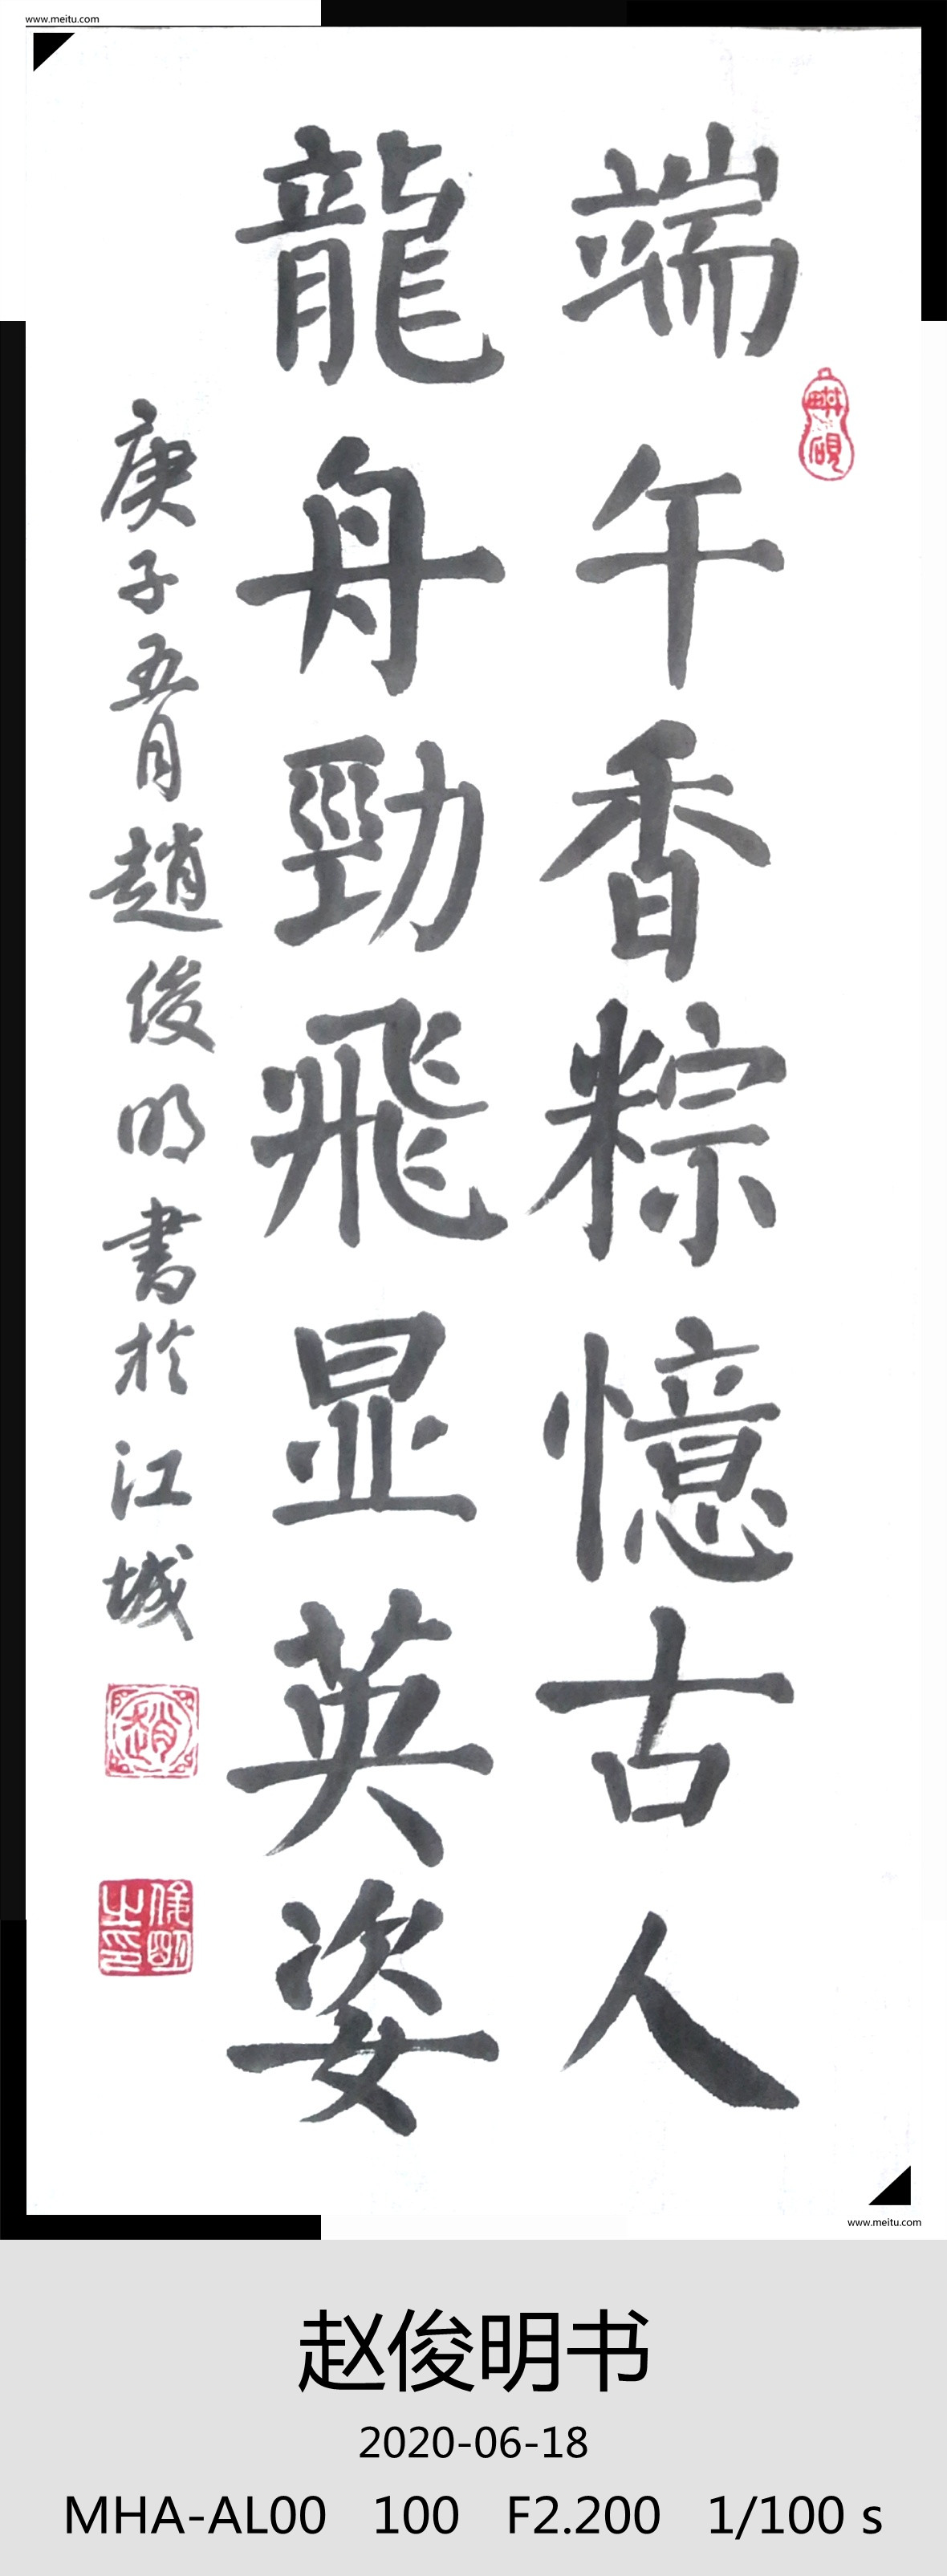 www.meitu.com
端午香粽憶古人
龍舟勁飛显英姿
庚子五月趙俊明書於江城
畊硯
趙
俊明之印
www.meitu.com
赵俊明书
2020-06-18
MHA-AL00 100 F2.200 1/100 s